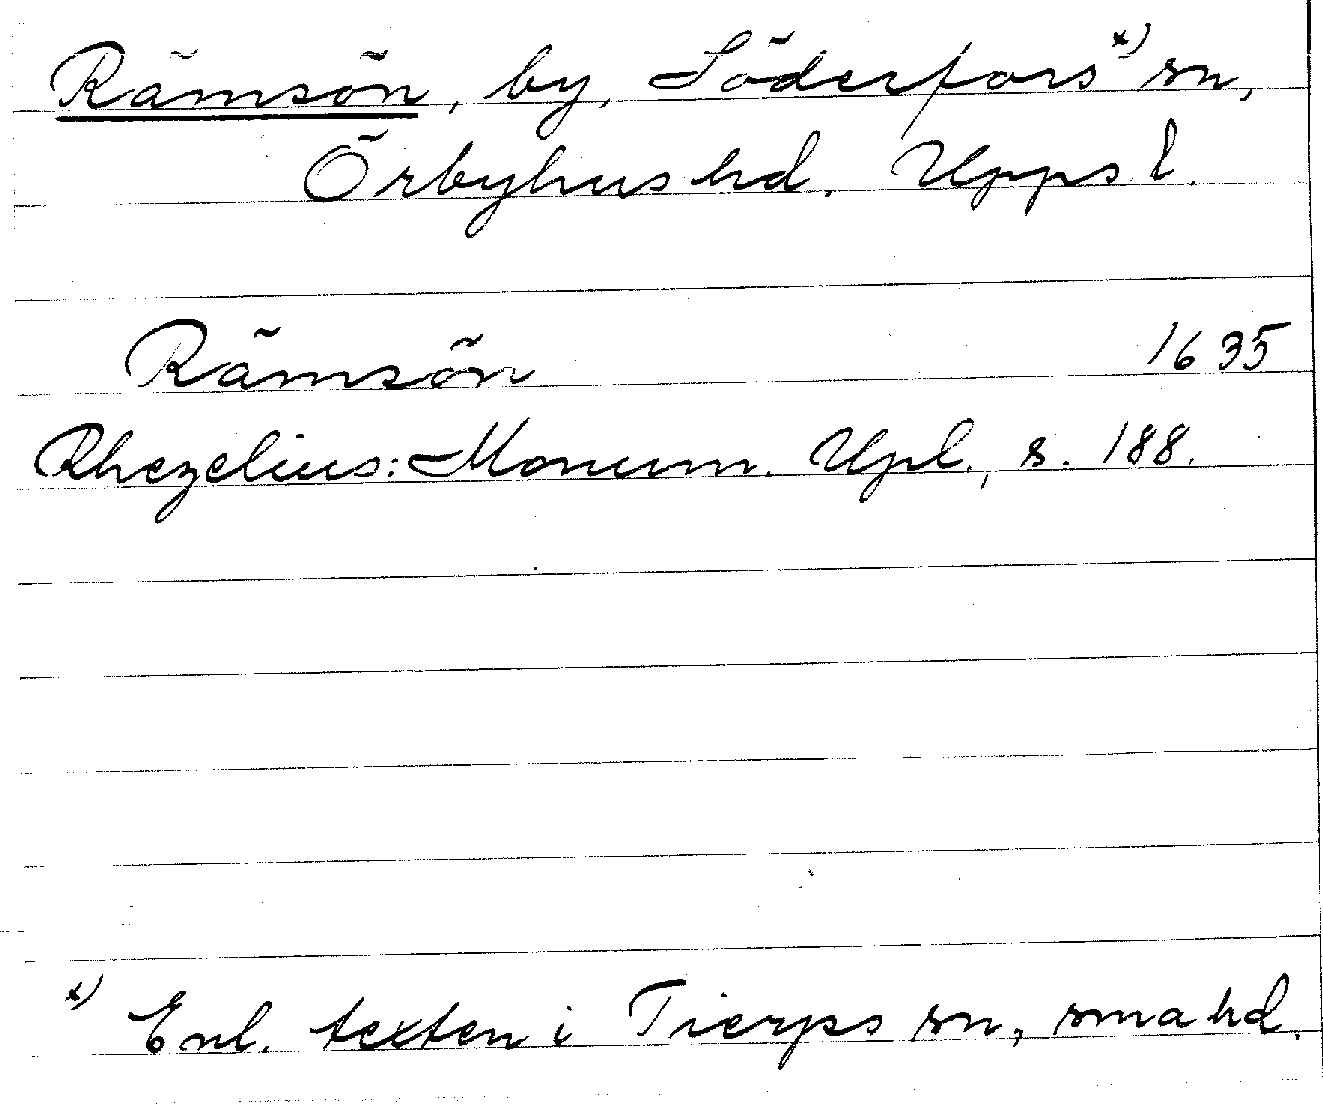 Rämsön, by, Söderfors x) sn,
Örbyhus hd. Upps l.
Rämsön 1635
Rhezelius: Monum. Upl., s. 188.
x) Enl. texten i Tierps sn, sma hd.